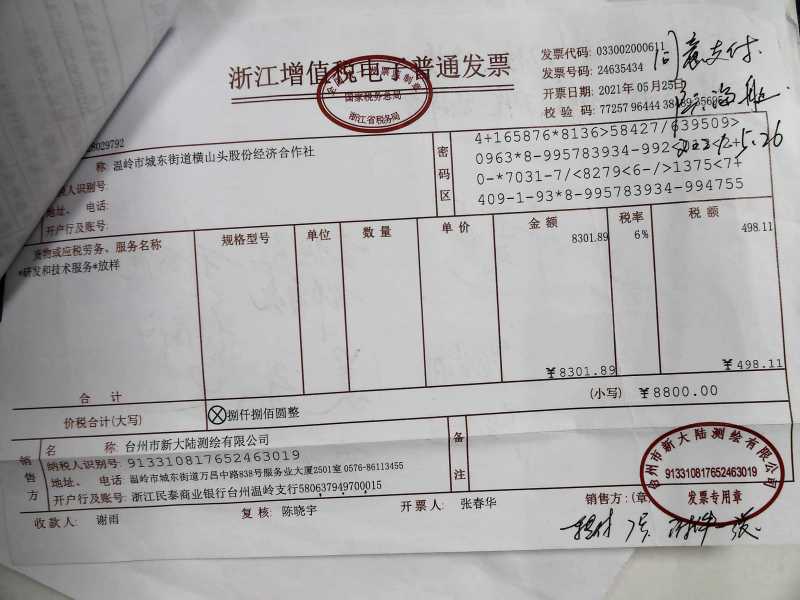 浙江增值税电子普通发票
国家税务总局
浙江省税务局
发票代码: 033002000611
发票号码: 24635434
开票日期: 2021年05月25日
校 验 码: 77257 96444 38489 35696
同意支付.
28029792
称: 温岭市城东街道横山头股份经济合作社
人识别号:
地址、 电话:
开户行及账号:
密码区
4+165876*8136>58427/639509>
0963*8-995783934-992
0-*7031-7/<8279<6-/>1375<7+
409-1-93*8-995783934-994755
货物或应税劳务、服务名称 规格型号 单位 数 量 单 价 金 额 税率 税 额
*研发和技术服务*放样 8301.89 6% 498.11
合 计 ￥8301.89 ￥498.11
价税合计(大写) 捌仟捌佰圆整 (小写) ￥8800.00
销售方
名 称: 台州市新大陆测绘有限公司
纳税人识别号: 913310817652463019
地址、 电话: 温岭市城东街道万昌中路838号服务业大厦2501室 0576-86113455
开户行及账号: 浙江民泰商业银行台州温岭支行580637949700015
备注
收款人: 谢雨 复 核: 陈晓宇 开 票 人: 张春华 销售方: (章)
台州市新大陆测绘有限公司
913310817652463019
发票专用章